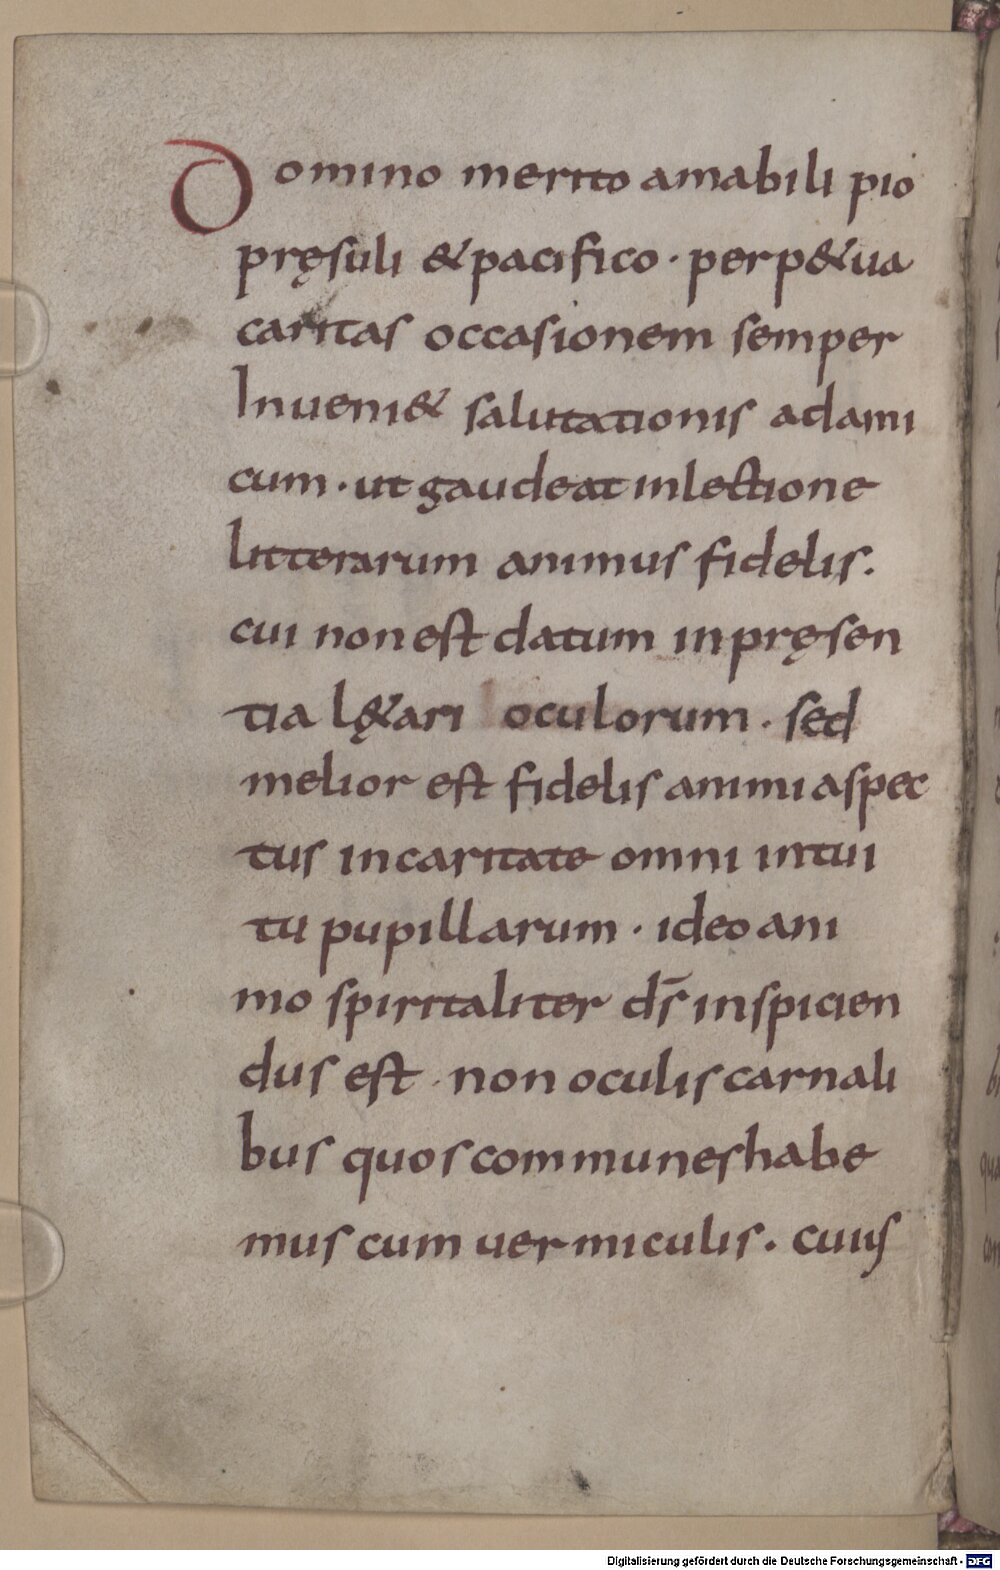 Domino merito amabili pio
pręsuli & pacifico · perp&ua
caritas occasionem semper
Inueni& salutationis ad ami
cum · ut gaudeat in lectione
litterarum animus fidelis.
cui non est datum in pręsen
tia lę&ari oculorum · sed
melior est fidelis animi aspec
tus in caritate omni intui
tu pupillarum · ideo ani
mo spiritaliter d̄s inspicien
dus est · non oculis carnali
bus quos communes habe
mus cum uermiculis. cuius
Digitalisierung gefördert durch die Deutsche Forschungsgemeinschaft - DFG